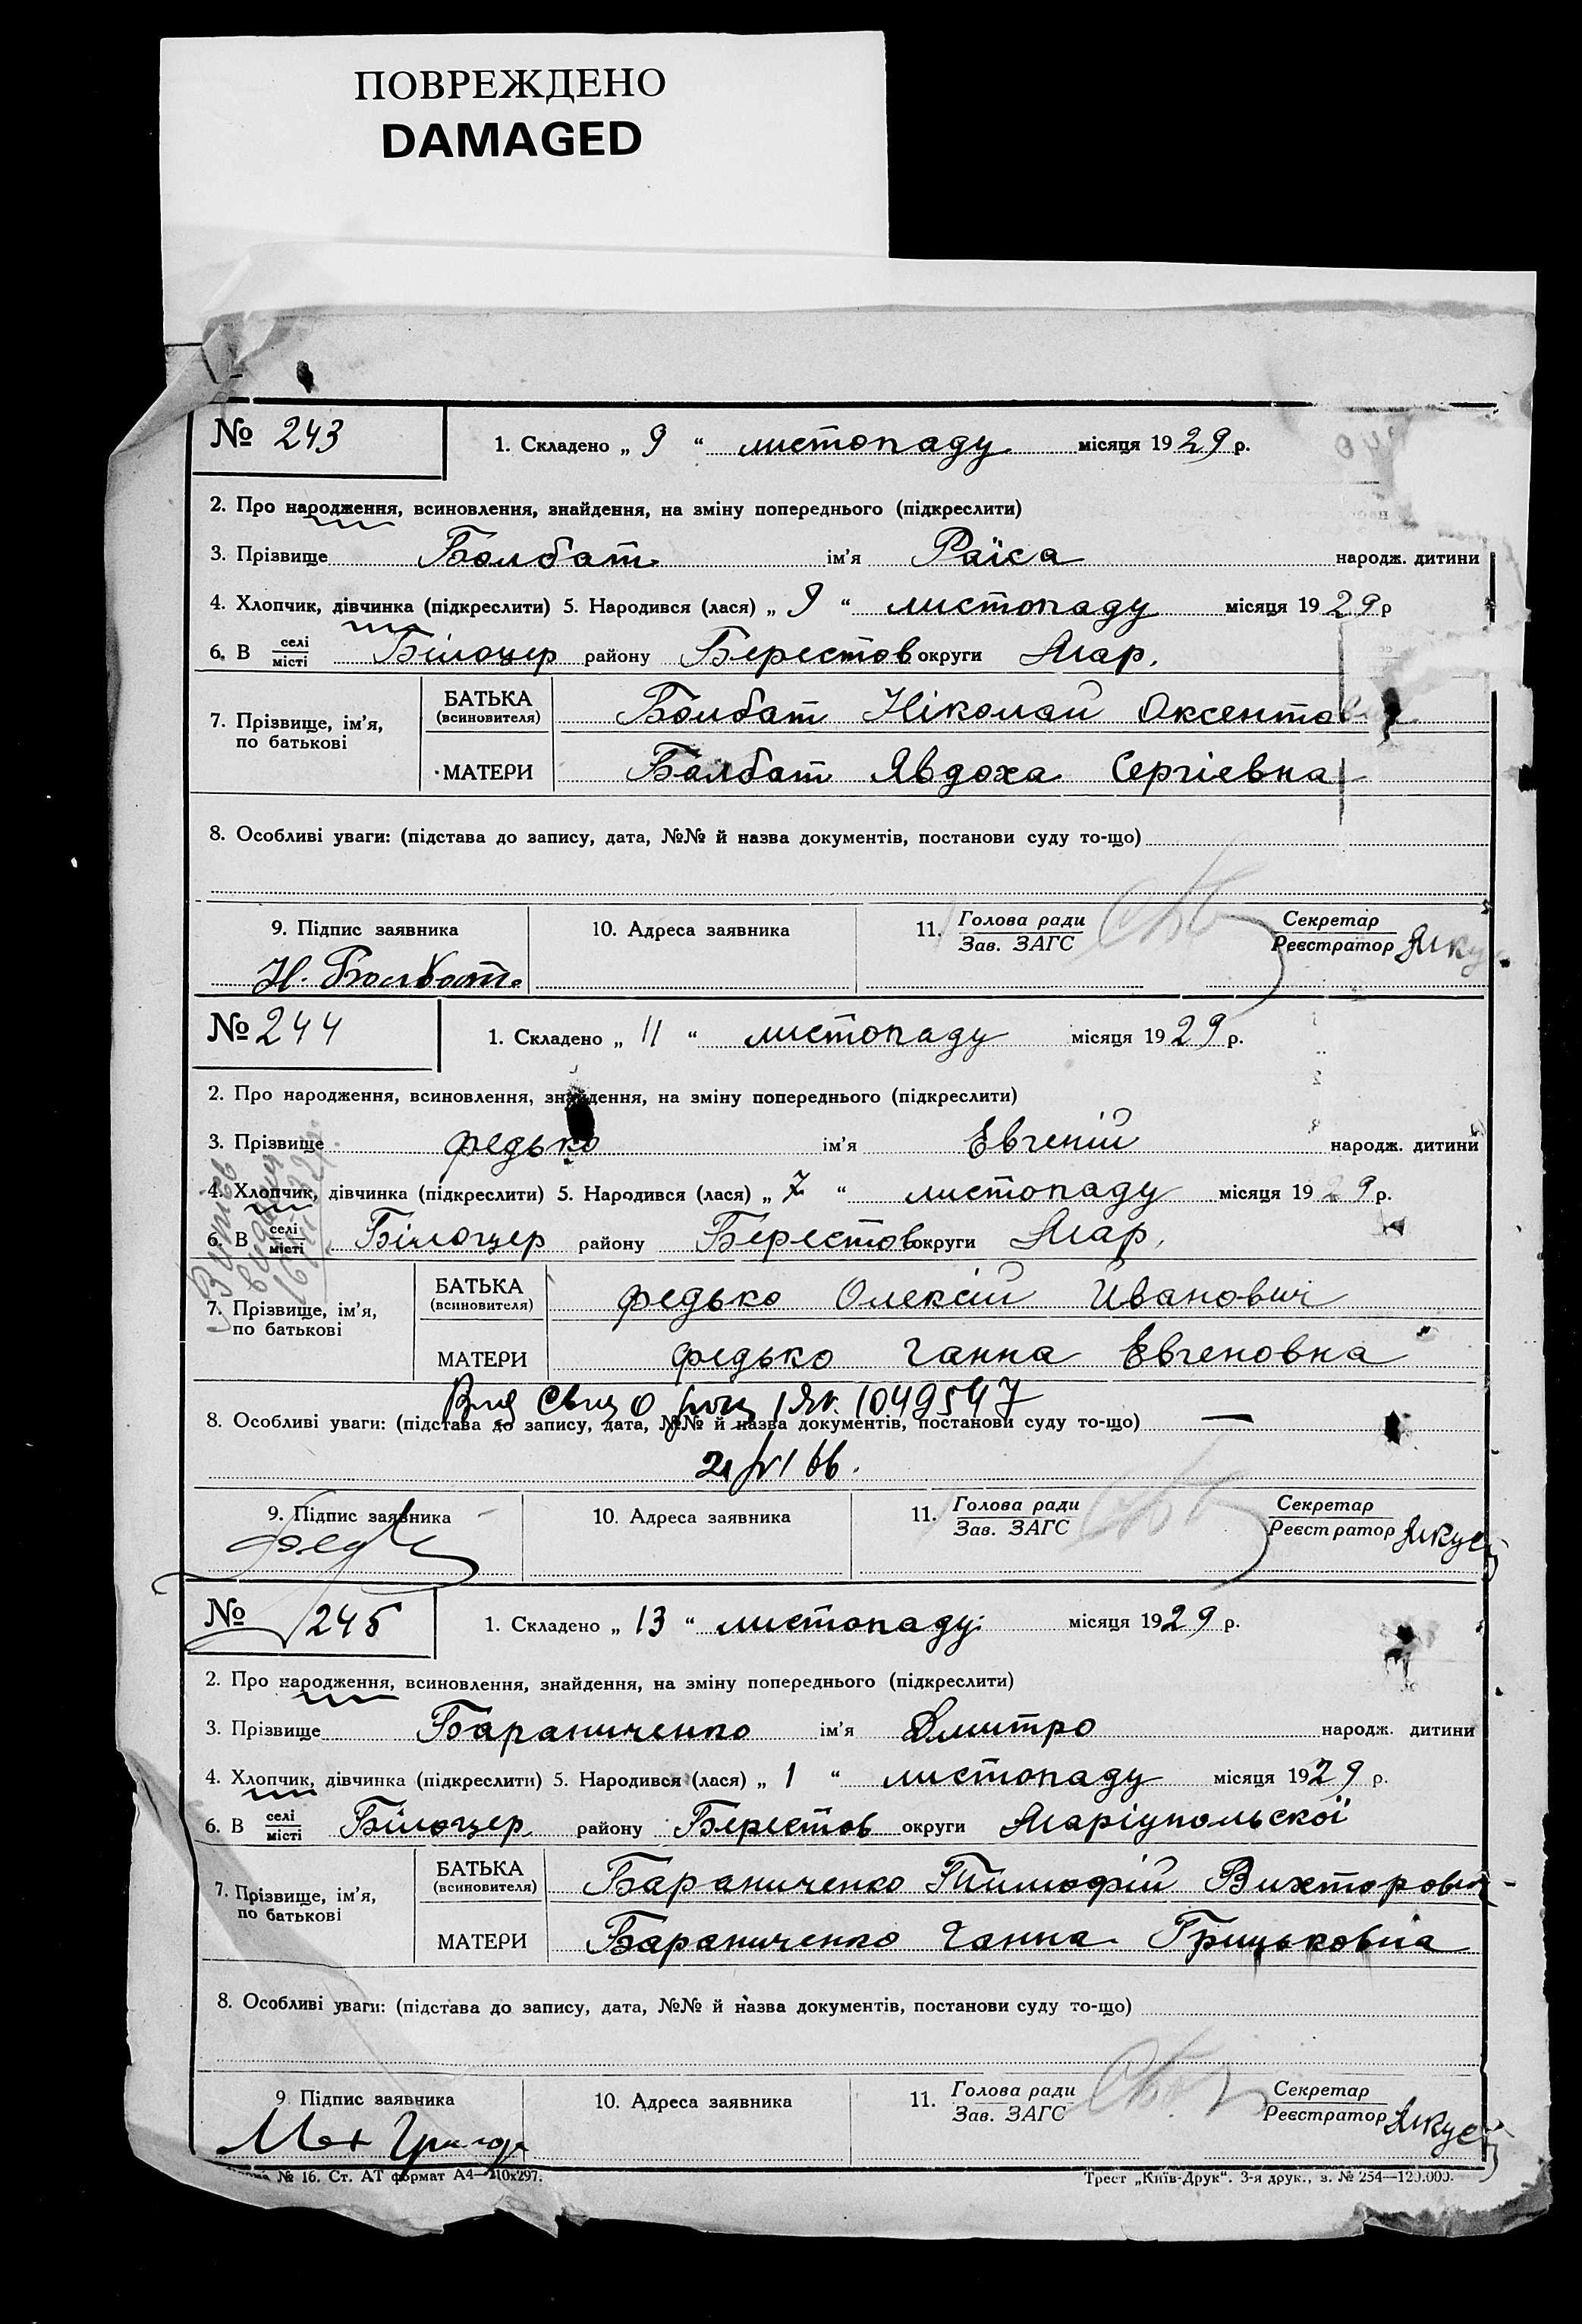 ПОВРЕЖДЕНО
DAMAGED
№ 243
1. Складено „ 9 “ листопаду місяця 1929 р.
2. Про народження, всиновлення, знайдення, на зміну попереднього (підкреслити)
3. Прізвище Болбат ім’я Раїса народж. дитини
4. Хлопчик, дівчинка (підкреслити) 5. Народився (лася) „ 9 “ листопаду місяця 1929 р
6. В селі місті Білоцер району Берестов округи Мар.
7. Прізвище, ім’я, по батькові
БАТЬКА (всиновителя) Болбат Ніколай
МАТЕРИ Балбат Явдоха Сергієвна
8. Особливі уваги: (підстава до запису, дата, №№ й назва документів, постанови суду то-що)
9. Підпис заявника 10. Адреса заявника 11. Голова ради Зав. ЗАГС Секретар Реєстратор
Н. Болбат.
№ 244
1. Складено „ 11 “ листопаду місяця 1929 р.
2. Про народження, всиновлення, знайдення, на зміну попереднього (підкреслити)
3. Прізвище Федько ім’я Евгеній народж. дитини
4. Хлопчик, дівчинка (підкреслити) 5. Народився (лася) „ 7 “ листопаду місяця 1929 р.
6. В селі місті Білоцер району Берестов округи Мар.
7. Прізвище, ім’я, по батькові
БАТЬКА (всиновителя) Федько Олексій Иванович
МАТЕРИ Федько Ганна Евгеновна
1049547
8. Особливі уваги: (підстава до запису, дата, №№ й назва документів, постанови суду то-що) —
9. Підпис заявника 10. Адреса заявника 11. Голова ради Зав. ЗАГС Секретар Реєстратор
№ 245
1. Складено „ 13 “ листопаду місяця 1929 р.
2. Про народження, всиновлення, знайдення, на зміну попереднього (підкреслити)
3. Прізвище Бараниченко ім’я Дмитро народж. дитини
4. Хлопчик, дівчинка (підкреслити) 5. Народився (лася) „ 1 “ листопаду місяця 1929 р.
6. В селі місті Білоцер. району Берестов округи Маріупольскої
7. Прізвище, ім’я, по батькові
БАТЬКА (всиновителя) Бараниченко Тимофій Вихторович
МАТЕРИ Бараниченко Ганна Грицьковна
8. Особливі уваги: (підстава до запису, дата, №№ й назва документів, постанови суду то-що)
9. Підпис заявника 10. Адреса заявника 11. Голова ради Зав. ЗАГС Секретар Реєстратор
№ 16. Ст. АТ формат А4—210х297. Трест „Київ-Друк“. 3-я друк., з. № 254—120.000.